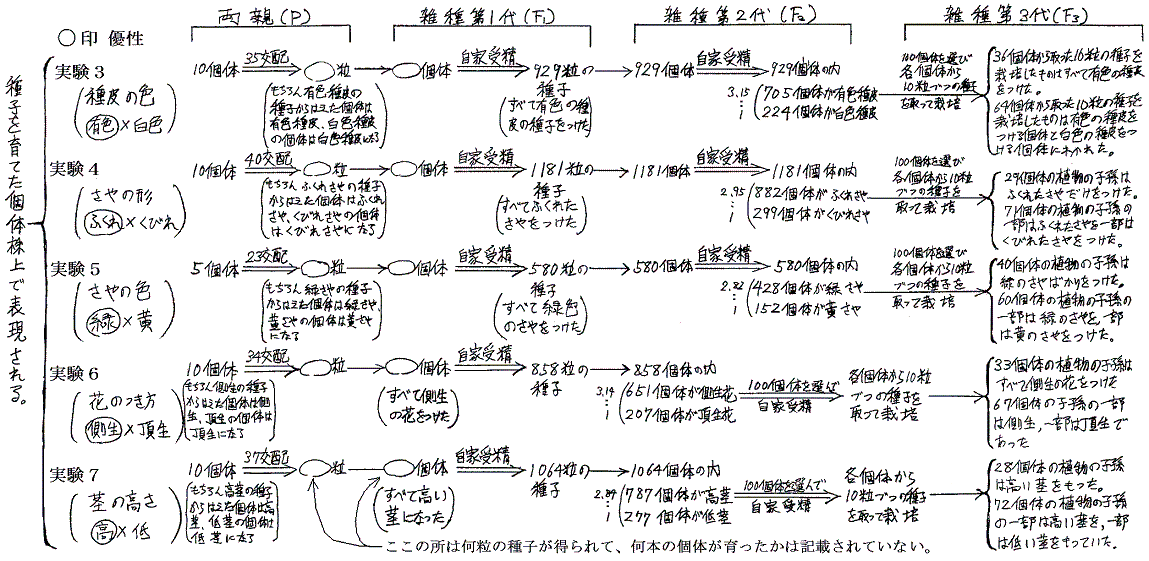 両親(P) 雑種第1代(F₁) 雑種第2代(F₂) 雑種第3代(F₃)
○印 優性
種子を育てた個体株上で表現される。
実験3
(種皮の色
有色×白色)
10個体 35交配 ○粒 ○個体 自家受精 929粒の種子 929個体 自家受精 929個体の内
(もちろん有色種皮の
種子からはえた個体は
有色種皮、白色種皮
の個体は白色種皮になる)
(すべて有色の種
皮の種子をつけた)
3.15 (705個体が有色種皮
1 224個体が白色種皮
100個体を選び
各個体から
10粒づつの種子
を取って栽培
36個体から取った10粒の種子を
栽培したものはすべて有色の種皮
をつけた。
64個体から取った10粒の種子を
栽培したものは有色の種皮を
つける個体と白色の種皮をつ
ける個体にわかれた。
実験4
(さやの形
ふくれ×くびれ)
10個体 40交配 ○粒 ○個体 自家受精 1181粒の種子 1181個体 自家受精 1181個体の内
(もちろんふくれさやの種子
からはえた個体はふくれ
さや、くびれさやの個体
はくびれさやになる)
(すべてふくれた
さやをつけた)
2.95 (882個体がふくれさや
1 299個体がくびれさや
100個体を選び
各個体から10粒
づつの種子を
取って栽培
29個体の植物の子孫は
ふくれたさやだけをつけた。
71個体の植物の子孫の
一部はふくれたさやを一部は
くびれたさやをつけた。
実験5
(さやの色
緑×黄)
5個体 23交配 ○粒 ○個体 自家受精 580粒の種子 580個体 自家受精 580個体の内
(もちろん緑さやの種子
からはえた個体は緑さや、
黄さやの個体は黄さや
になる)
(すべて緑色
のさやをつけた)
2.82 (428個体が緑さや
1 152個体が黄さや
100個体を選び
各個体から10粒
づつの種子を
取って栽培
40個体の植物の子孫は
緑のさやばかりをつけた。
60個体の植物の子孫の
一部は緑のさやを、一部
は黄のさやをつけた。
実験6
(花のつき方
側生×頂生)
10個体 34交配 ○粒 ○個体 自家受精 858粒の種子 858個体の内
(もちろん側生の種子
からはえた個体は側
生、頂生の個体は
頂生になる)
(すべて側生
の花をつけた)
3.14 (651個体が側生花
1 207個体が頂生花
100個体を選んで
自家受精
各個体から10粒
づつの種子を
取って栽培
33個体の植物の子孫は
すべて側生の花をつけた
67個体の子孫の一部
は側生、一部は頂生で
あった
実験7
(茎の高さ
高×低)
10個体 37交配 ○粒 ○個体 自家受精 1064粒の種子 1064個体の内
(もちろん高茎の種子
からはえた個体は高
茎、低茎の個体は
低茎になる)
(すべて高い
茎になった)
2.84 (787個体が高茎
1 277個体が低茎
100個体を選んで
自家受精
各個体から
10粒づつの種子
を取って栽培
28個体の植物の子孫
は高い茎をもった。
72個体の植物の子孫
の一部は高い茎を、一部
は低い茎をもっていた。
ここの所は何粒の種子が得られて、何本の個体が育ったかは記載されていない。